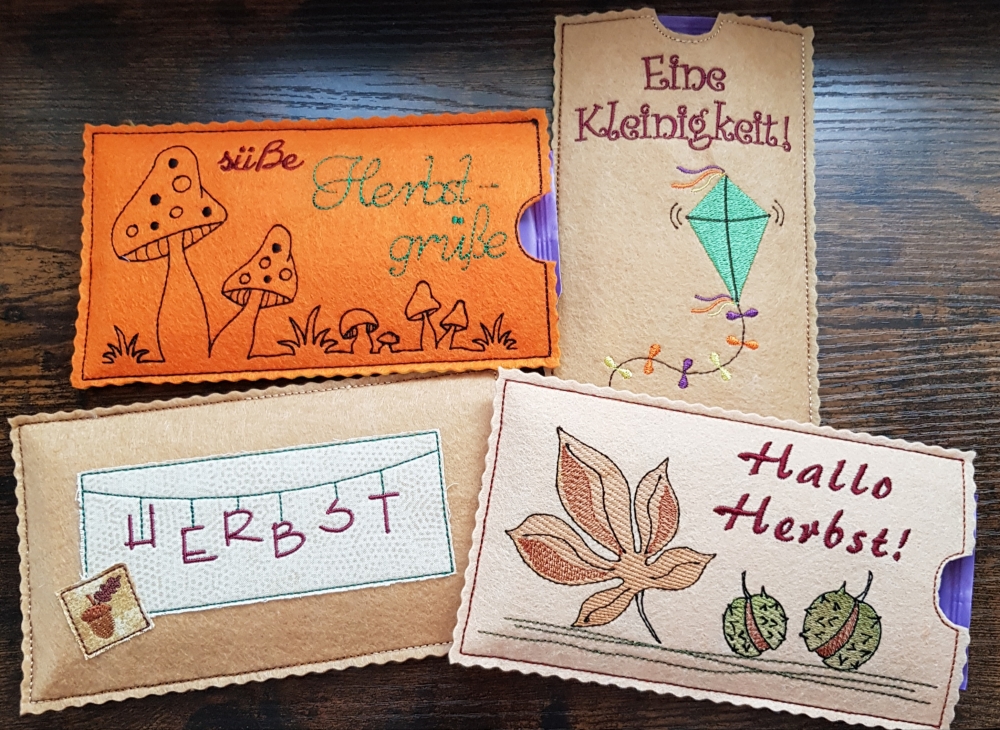 süße Herbst-
grüße
Eine
Kleinigkeit!
HERBST
Hallo
Herbst!